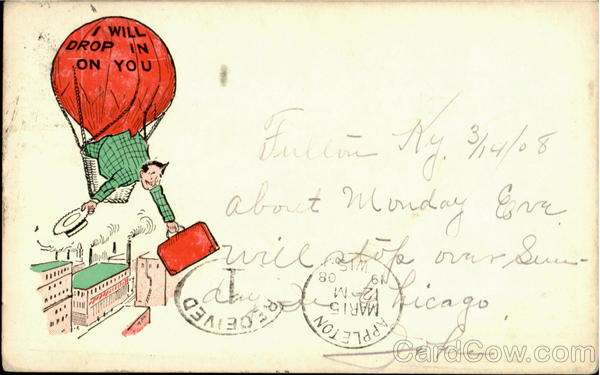 I WILL
DROP IN
ON YOU
Fulton Ky. 3/14/08
about Monday Eve
will stop over Sun-
day in Chicago
John
RECEIVED
1
APPLETON
MAR 15
12 M
19 08
WIS.
CardCow.com